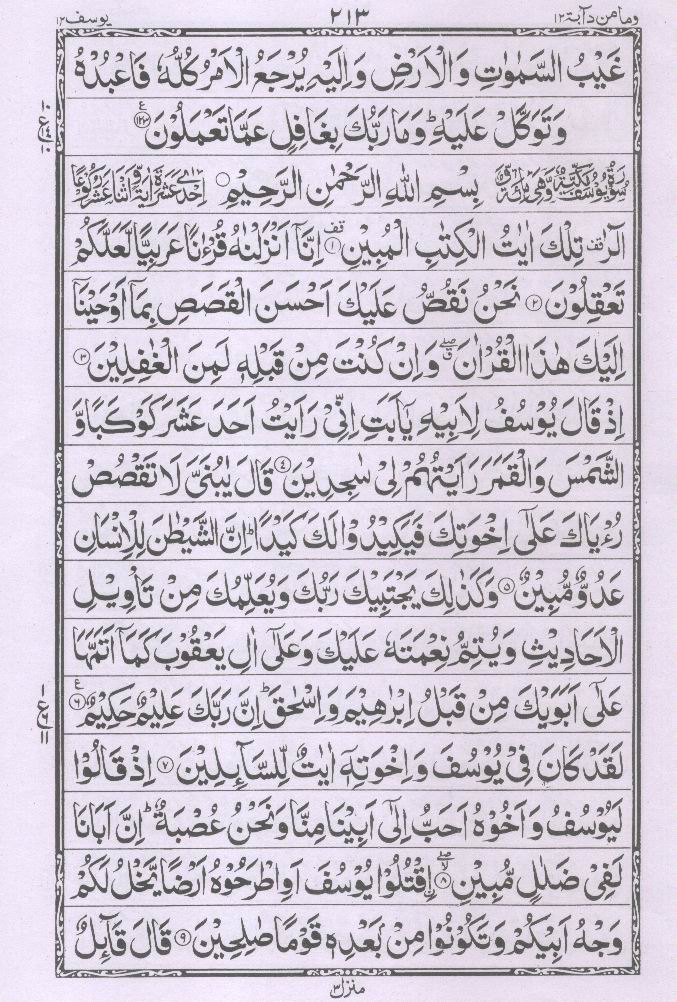 وما من دآبة ١٢ ٢١٣ يوسف ١٢
غَيْبُ السَّمٰوٰتِ وَالْاَرْضِ وَاِلَيْهِ يُرْجَعُ الْاَمْرُ كُلُّهٗ فَاعْبُدْهُ
وَتَوَكَّلْ عَلَيْهِ ؕ وَمَا رَبُّكَ بِغَافِلٍ عَمَّا تَعْمَلُوْنَ ﴿۱۲۳﴾ ع
بِسْمِ اللّٰهِ الرَّحْمٰنِ الرَّحِيْمِ
الٓرٰ قف تِلْكَ اٰيٰتُ الْكِتٰبِ الْمُبِيْنِ ﴿۱﴾ قف اِنَّاۤ اَنْزَلْنٰهُ قُرْءٰنًا عَرَبِيًّا لَّعَلَّكُمْ
تَعْقِلُوْنَ ﴿۲﴾ نَحْنُ نَقُصُّ عَلَيْكَ اَحْسَنَ الْقَصَصِ بِمَاۤ اَوْحَيْنَاۤ
اِلَيْكَ هٰذَا الْقُرْاٰنَ ۖ ق وَاِنْ كُنْتَ مِنْ قَبْلِهٖ لَمِنَ الْغٰفِلِيْنَ ﴿۳﴾
اِذْ قَالَ يُوْسُفُ لِاَبِيْهِ يٰۤاَبَتِ اِنِّيْ رَاَيْتُ اَحَدَ عَشَرَ كَوْكَبًا وَّ
الشَّمْسَ وَالْقَمَرَ رَاَيْتُهُمْ لِيْ سٰجِدِيْنَ ﴿۴﴾ قَالَ يٰبُنَيَّ لَا تَقْصُصْ
رُءْيَاكَ عَلٰۤى اِخْوَتِكَ فَيَكِيْدُوْا لَكَ كَيْدًا ؕ اِنَّ الشَّيْطٰنَ لِلْاِنْسَانِ
عَدُوٌّ مُّبِيْنٌ ﴿۵﴾ وَكَذٰلِكَ يَجْتَبِيْكَ رَبُّكَ وَيُعَلِّمُكَ مِنْ تَاْوِيْلِ
الْاَحَادِيْثِ وَيُتِمُّ نِعْمَتَهٗ عَلَيْكَ وَعَلٰۤى اٰلِ يَعْقُوْبَ كَمَاۤ اَتَمَّهَا
عَلٰۤى اَبَوَيْكَ مِنْ قَبْلُ اِبْرٰهِيْمَ وَاِسْحٰقَ ؕ اِنَّ رَبَّكَ عَلِيْمٌ حَكِيْمٌ ﴿۶﴾ ع
لَقَدْ كَانَ فِيْ يُوْسُفَ وَاِخْوَتِهٖۤ اٰيٰتٌ لِّلسَّآئِلِيْنَ ﴿۷﴾ اِذْ قَالُوْا
لَيُوْسُفُ وَاَخُوْهُ اَحَبُّ اِلٰۤى اَبِيْنَا مِنَّا وَنَحْنُ عُصْبَةٌ ؕ اِنَّ اَبَانَا
لَفِيْ ضَلٰلٍ مُّبِيْنِ ﴿۸﴾ ۖ لا اِۨقْتُلُوْا يُوْسُفَ اَوِاطْرَحُوْهُ اَرْضًا يَّخْلُ لَكُمْ
وَجْهُ اَبِيْكُمْ وَتَكُوْنُوْا مِنْ بَعْدِهٖ قَوْمًا صٰلِحِيْنَ ﴿۹﴾ قَالَ قَآئِلٌ
منزل ٣